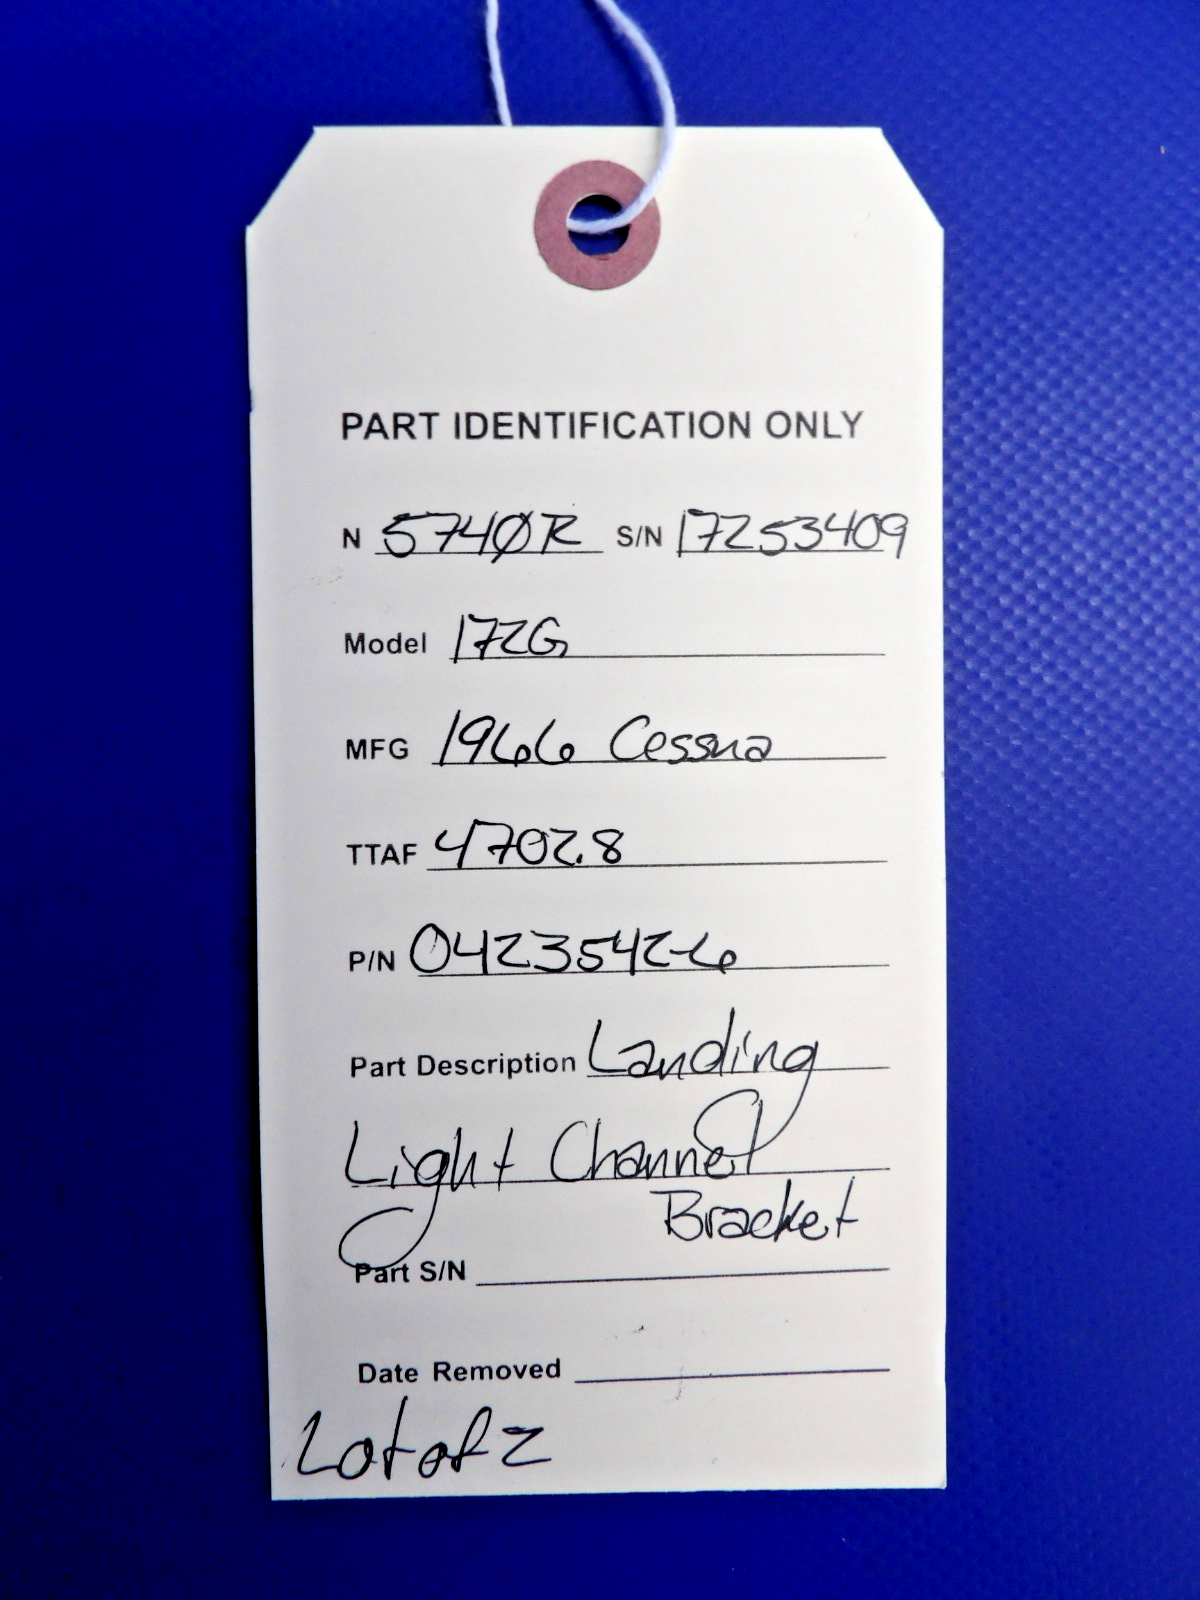 PART IDENTIFICATION ONLY
N 5740R S/N 17253409
Model 172G
MFG 1966 Cessna
TTAF 4702.8
P/N 0423542-6
Part Description Landing
Light Channel
Bracket
Part S/N
Date Removed
Lot of 2